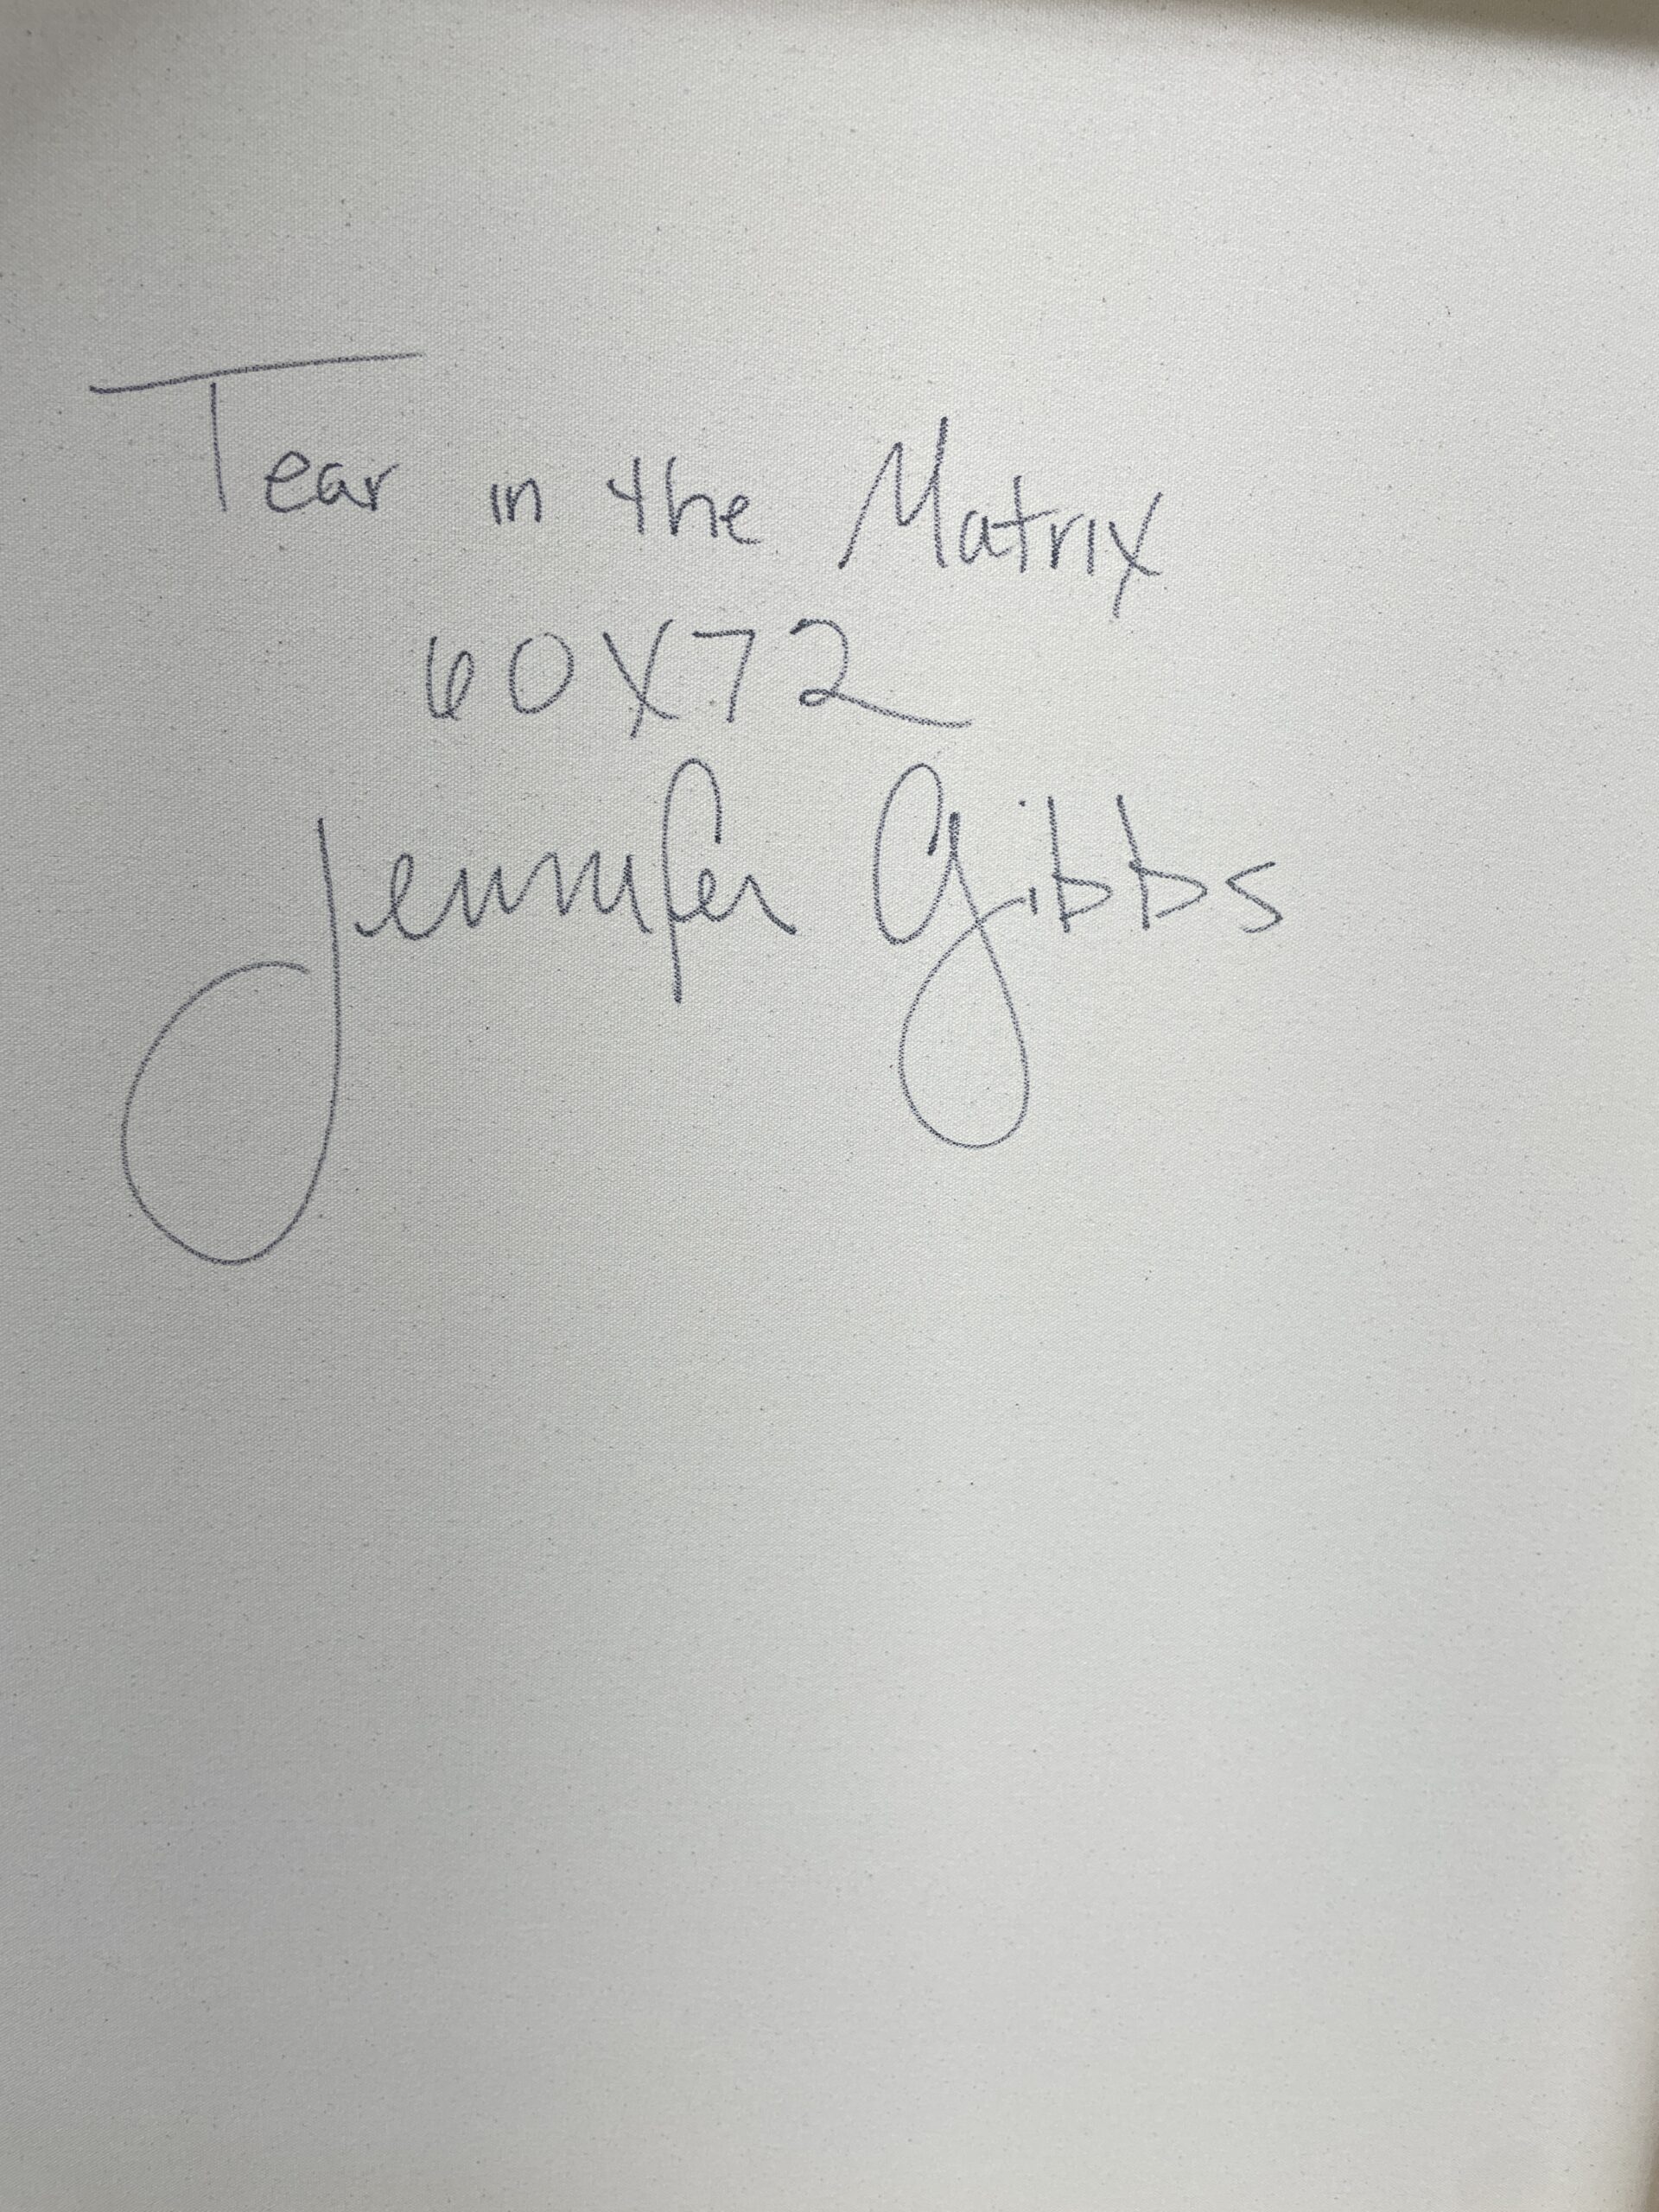 Tear in the Matrix
60X72
Jennifer Gibbs